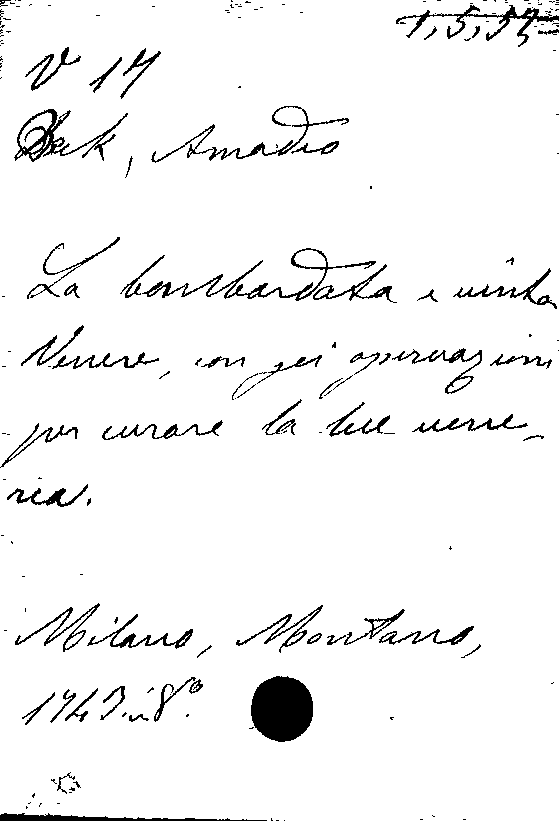 1,5,53
V 17
Bek, Amadio
La bombardata e vinta
Venere, con gli
per curare la lue vene-
rea.
Milano, Montano,
1743 in 8°.